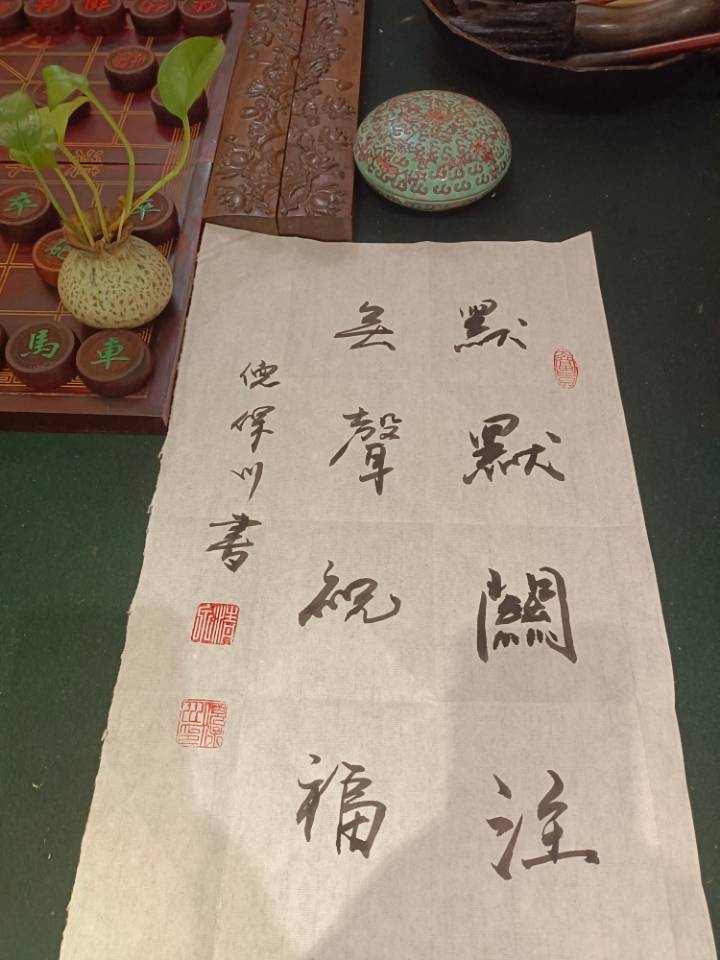 默默關注
無聲祝福
德保川書
卒
卒
馬
車